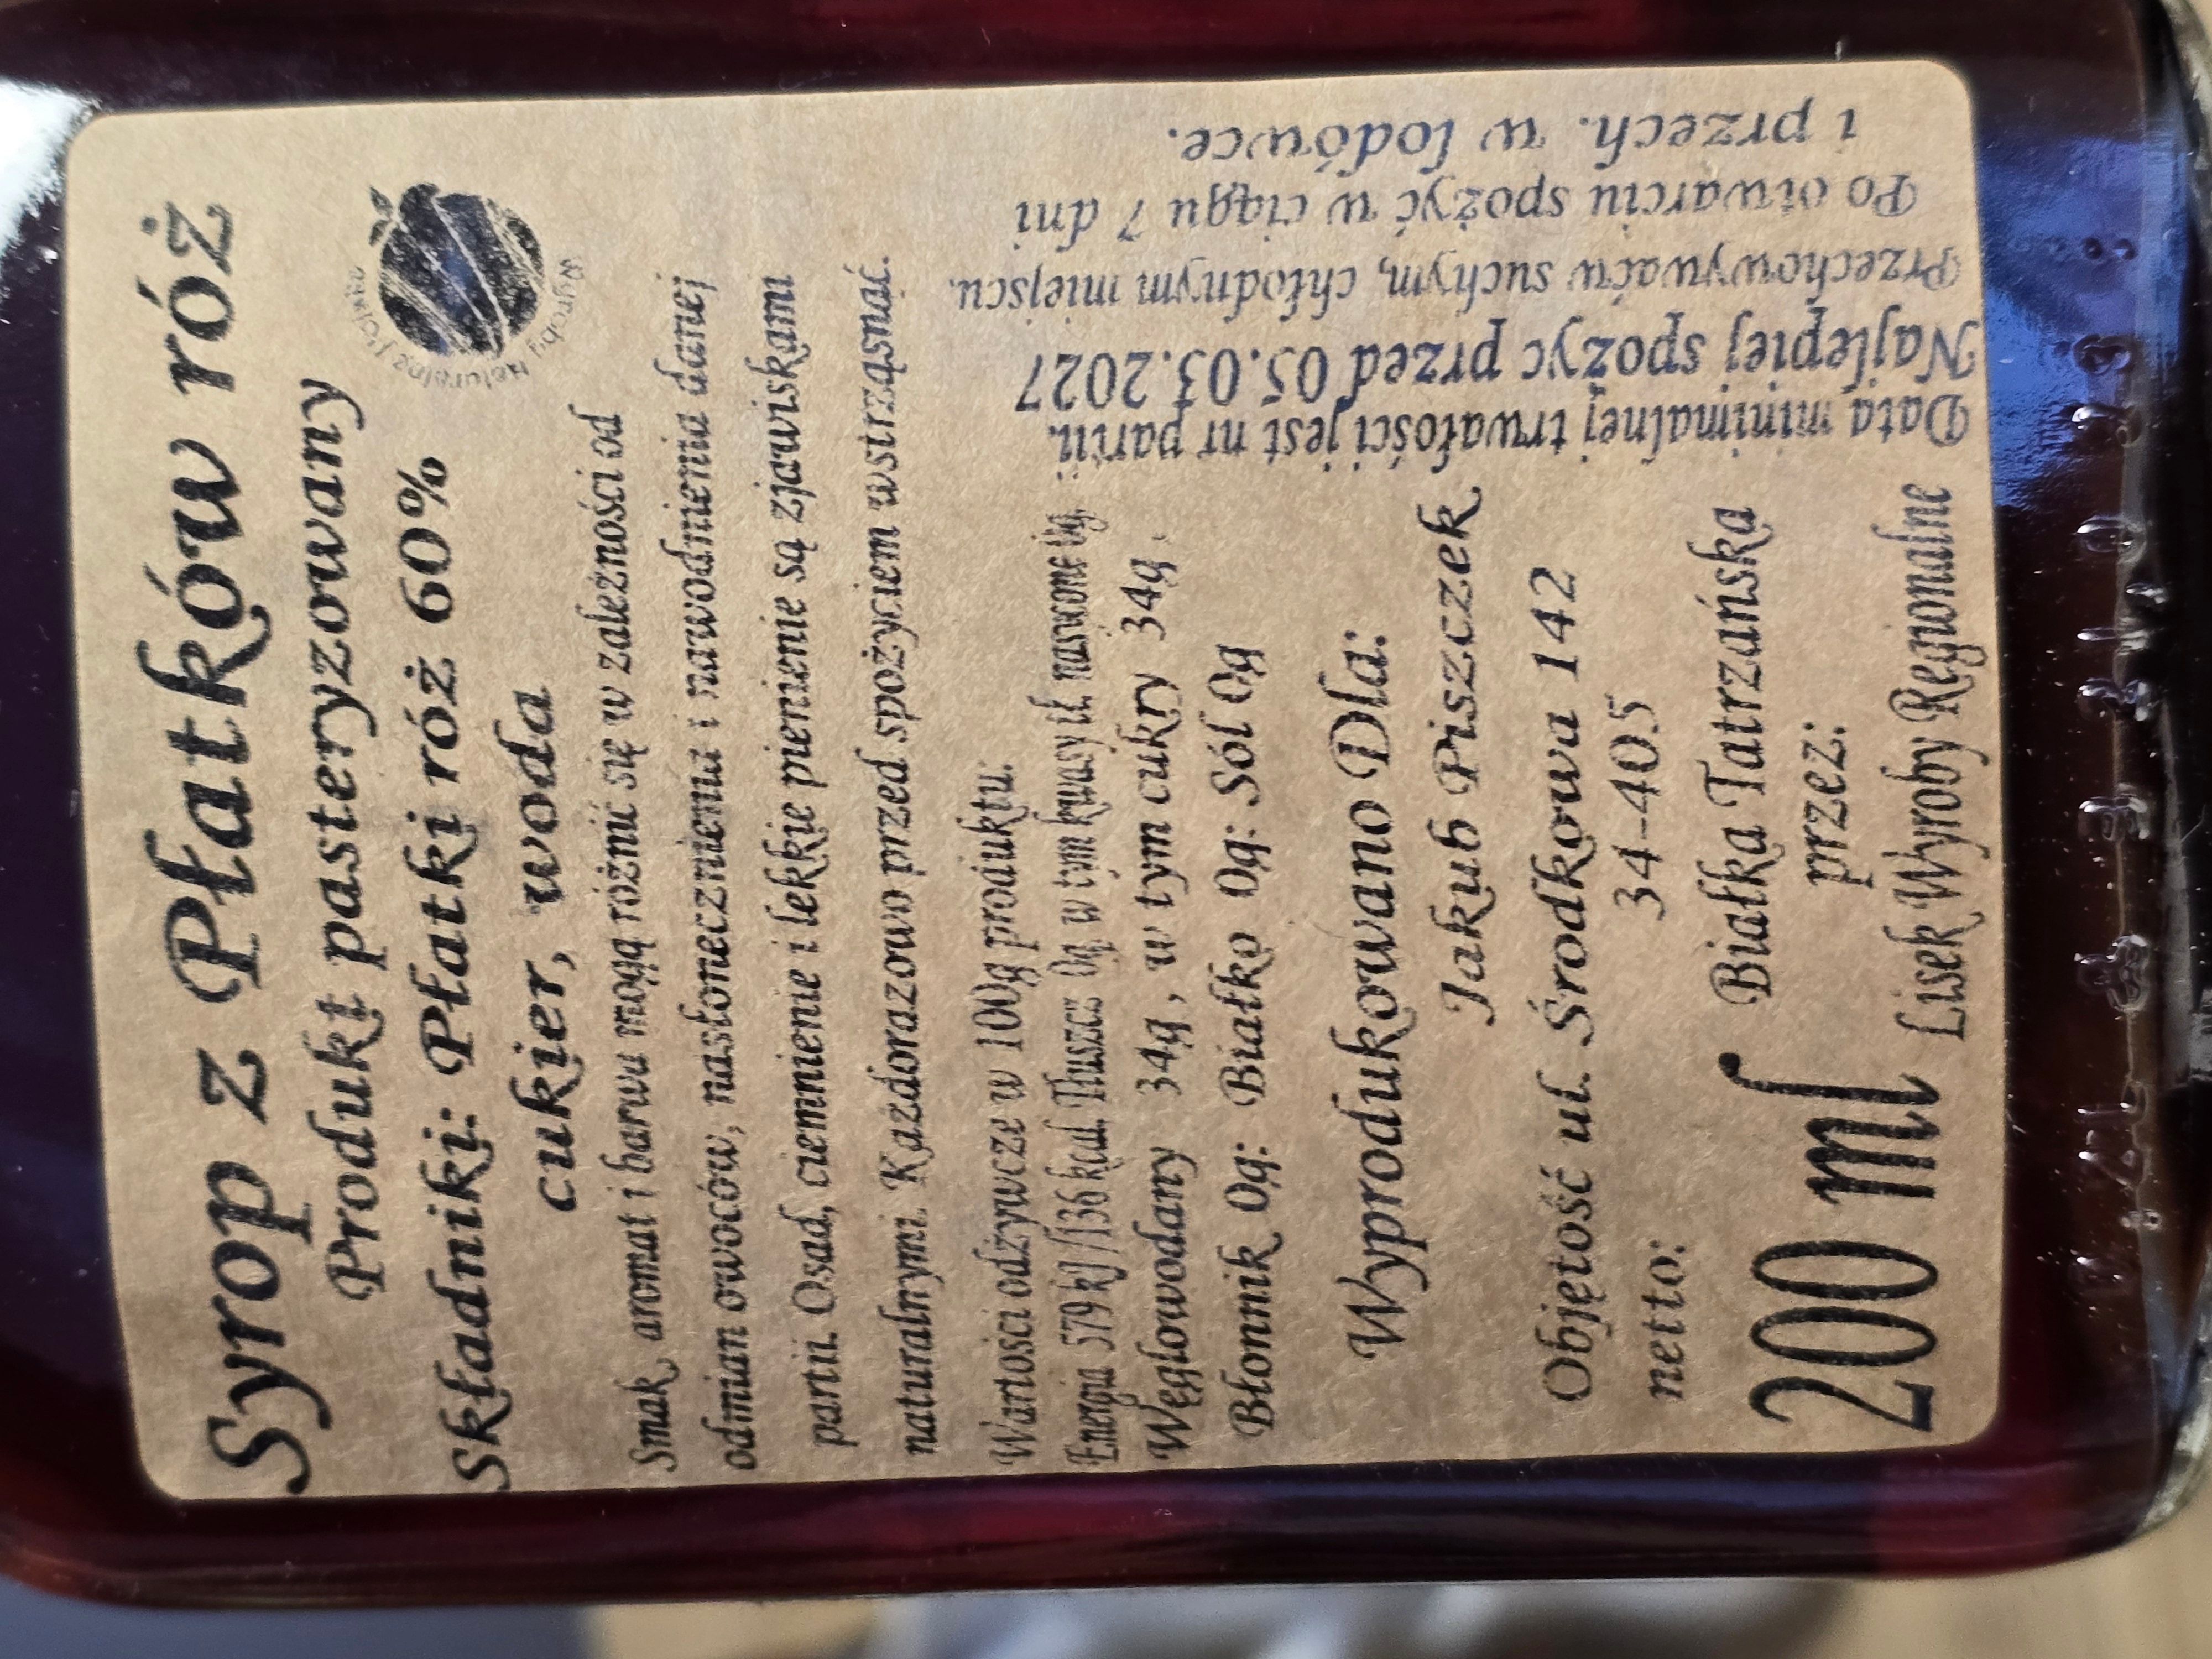 Syrop z Płatków róż
Produkt pasteryzowany
Składniki: Płatki róż 60%
cukier, woda
Naturalne i Polskie
Wyroby
Smak, aromat i barwa mogą różnić się w zależności od
odmian owoców, nasłonecznienia i nawodnienia danej
partii. Osad, ciemnienie i lekkie pienienie są zjawiskami
naturalnymi. Każdorazowo przed spożyciem wstrząsnąć.
Wartości odżywcze w 100g produktu:
Energia 579 kJ/136 kcal. Tłuszcz 0g, w tym kwasy tł. nasycone 0g,
Węglowodany 34g, w tym cukry 34g,
Błonnik 0g: Białko 0g: Sól 0g
Wyprodukowano Dla:
Jakub Piszczek
Objętość ul. Środkowa 142
netto: 34-405
200 ml Białka Tatrzańska
przez:
Lisek Wyroby Regionalne
Data minimalnej trwałości jest nr partii.
Najlepiej spożyc przed 05.03.2027
Przechowywaćw suchym, chłodnym miejscu.
Po otwarciu spożyć w ciągu 7 dni
i przech. w lodówce.